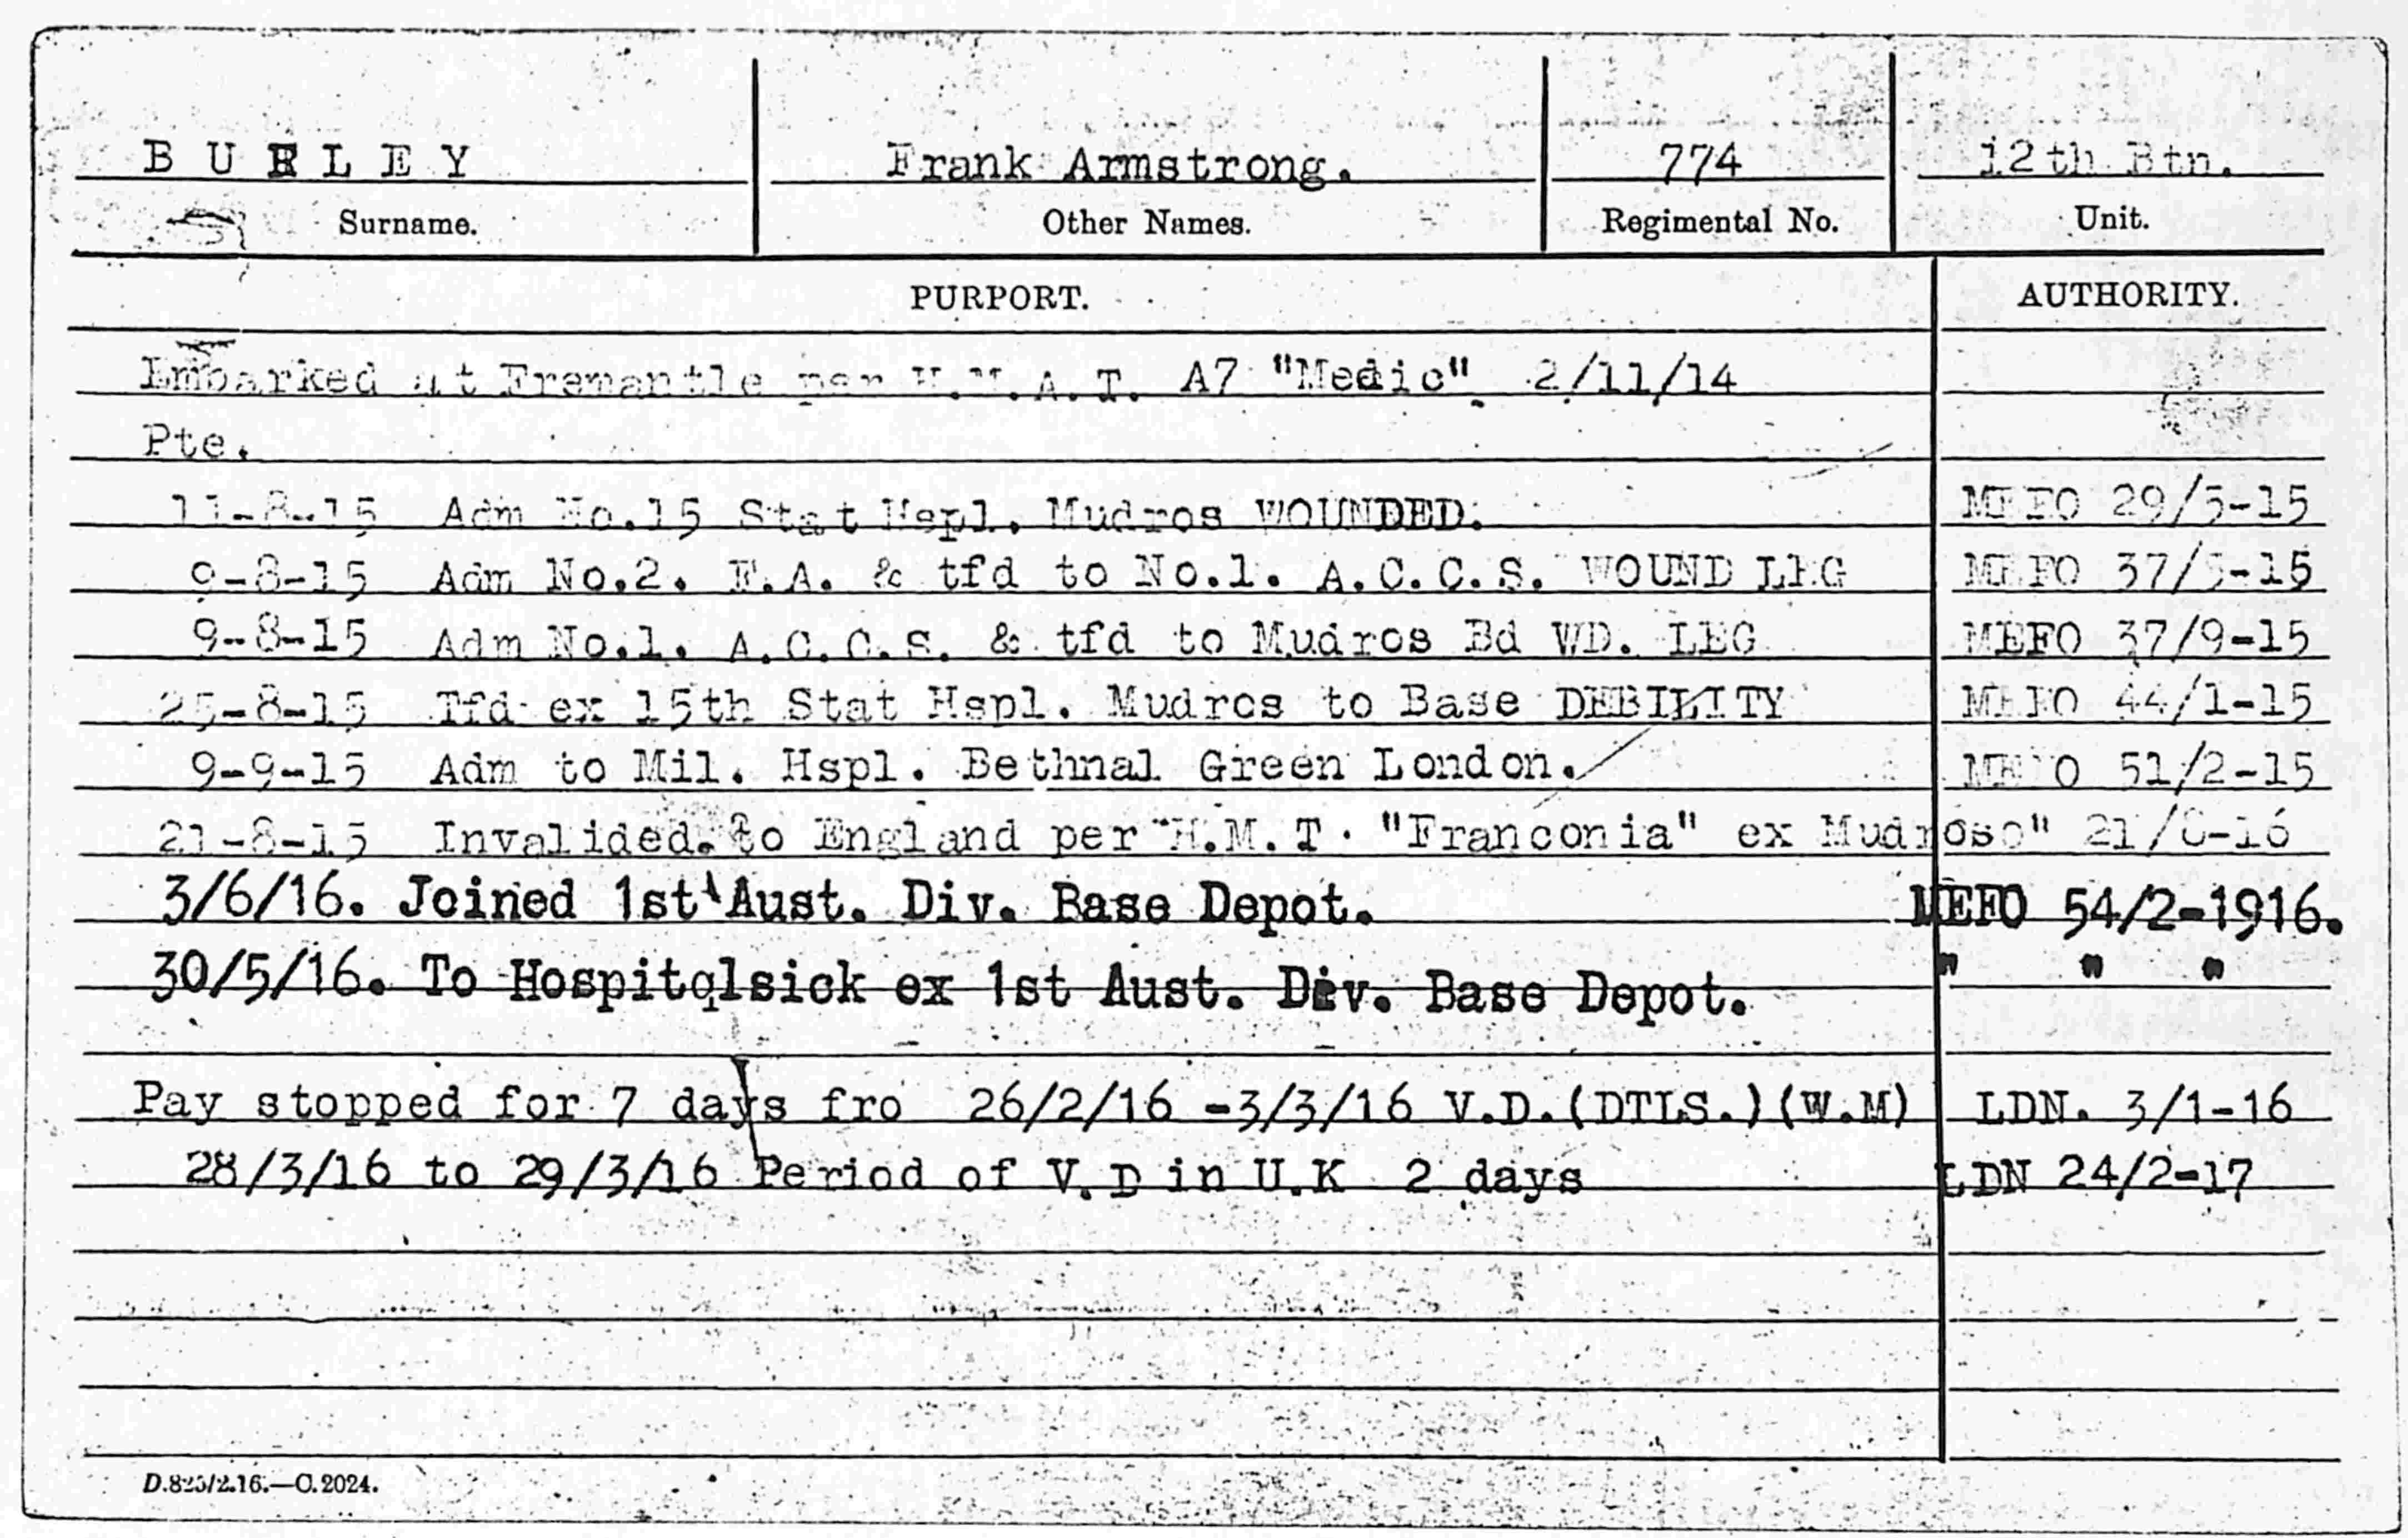 BURLEY Frank Armstrong. 774 12th Btn.
Surname. Other Names. Regimental No. Unit.
PURPORT. AUTHORITY.
Embarked at Fremantle per H.M.A.T. A7 "Medic" 2/11/14
Pte.
11-8-15 Adm No.15 Stat Hspl. Mudros WOUNDED. MEFO 29/5-15
9-8-15 Adm No.2. F.A. & tfd to No.1. A.C.C.S. WOUND LEG MEFO 37/5-15
9-8-15 Adm No.1. A.C.C.S. & tfd to Mudros Bd WD. LEG MEFO 37/9-15
25-8-15 Tfd ex 15th Stat Hspl. Mudros to Base DEBILITY MEFO 44/1-15
9-9-15 Adm to Mil. Hspl. Bethnal Green London. MEFO 51/2-15
21-8-15 Invalided to England per H.M.T. "Franconia" ex Mudros
3/6/16. Joined 1st Aust. Div. Base Depot. MEFO 54/2-1916.
30/5/16. To Hospitalsick ex 1st Aust. Div. Base Depot. " " "
Pay stopped for 7 days fro 26/2/16 -3/3/16 V.D.(DTLS.)(W.M) LDN. 3/1-16
28/3/16 to 29/3/16 Period of V.D in U.K 2 days LDN 24/2-17